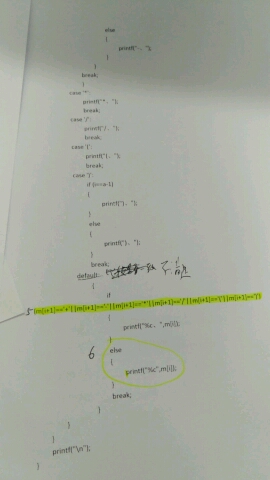 else
{
printf("-、");
}
}
break;
}
case '*':
printf("*、");
break;
case '/':
printf("/、");
break;
case '(':
printf("(、");
break;
case ')':
if (i==a-1)
{
printf(")、");
}
else
{
printf(")、");
}
break;
default:
{
if
5 (m[i+1]=='+'||m[i+1]=='-'||m[i+1]=='*'||m[i+1]=='/'||m[i+1]=='('||m[i+1]==')')
{
printf("%c、",m[i]);
}
6 else
{
printf("%c",m[i]);
}
break;
}
}
}
printf("\n");
}